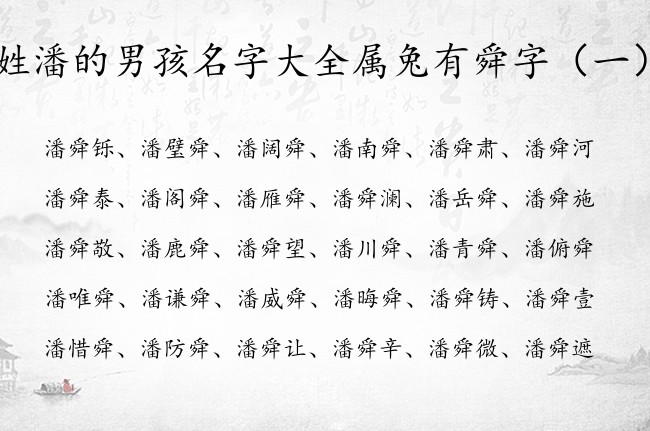 姓潘的男孩名字大全属兔有舜字（一）
潘舜铄、潘璧舜、潘阔舜、潘南舜、潘舜肃、潘舜河
潘舜泰、潘阁舜、潘雁舜、潘舜澜、潘岳舜、潘舜施
潘舜敬、潘鹿舜、潘舜望、潘川舜、潘青舜、潘俯舜
潘唯舜、潘谦舜、潘威舜、潘晦舜、潘舜铸、潘舜壹
潘惜舜、潘防舜、潘舜让、潘舜辛、潘舜微、潘舜遮